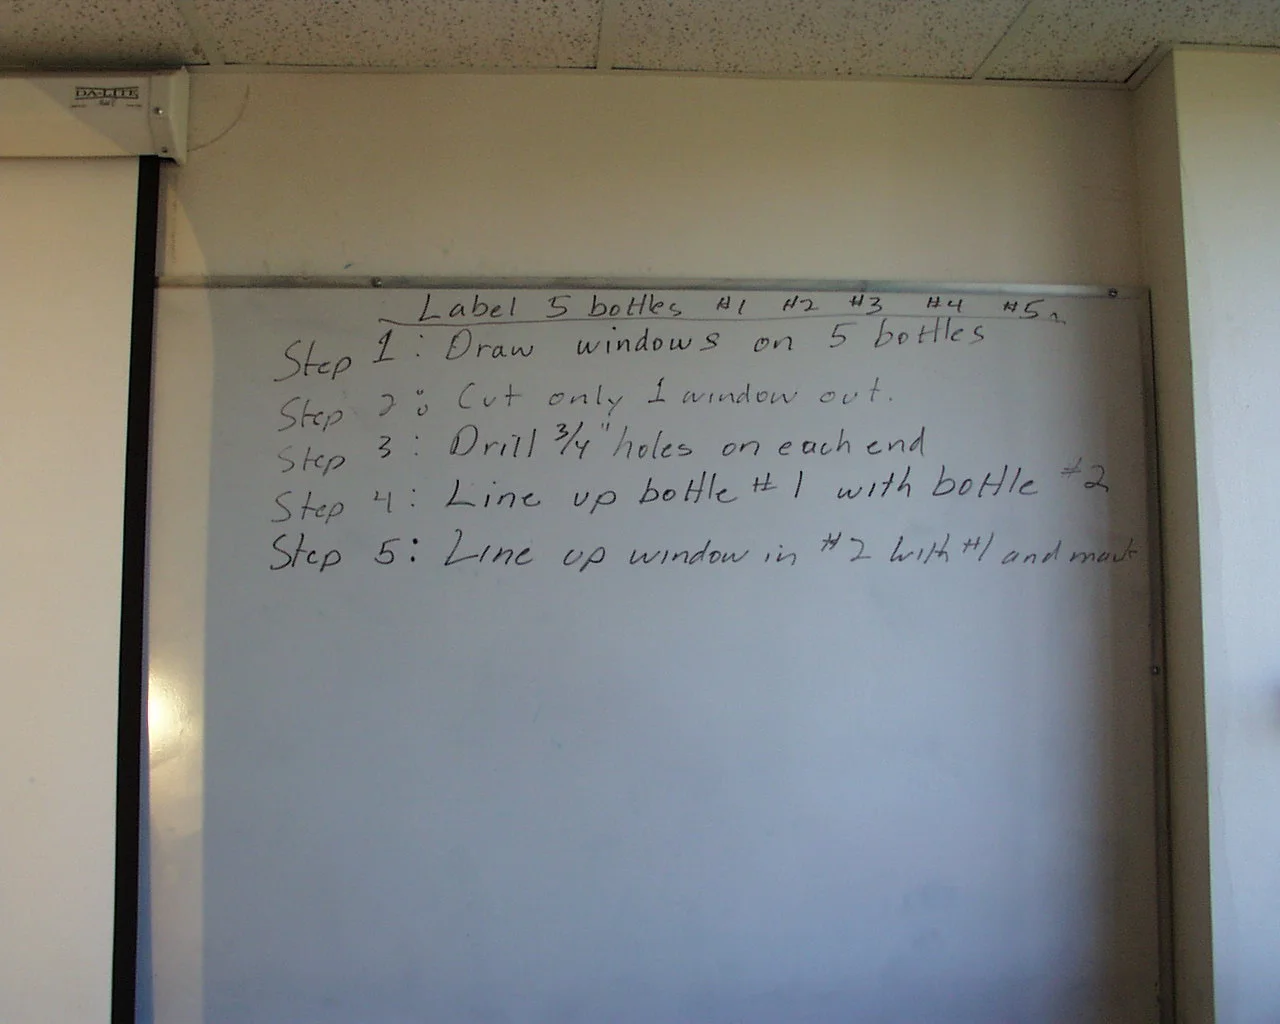 DA-LITE
Label 5 bottles #1 #2 #3 #4 #5
Step 1: Draw windows on 5 bottles
Step 2: Cut only 1 window out.
Step 3: Drill 3/4" holes on each end
Step 4: Line up bottle #1 with bottle #2
Step 5: Line up window in #2 with #1 and mark